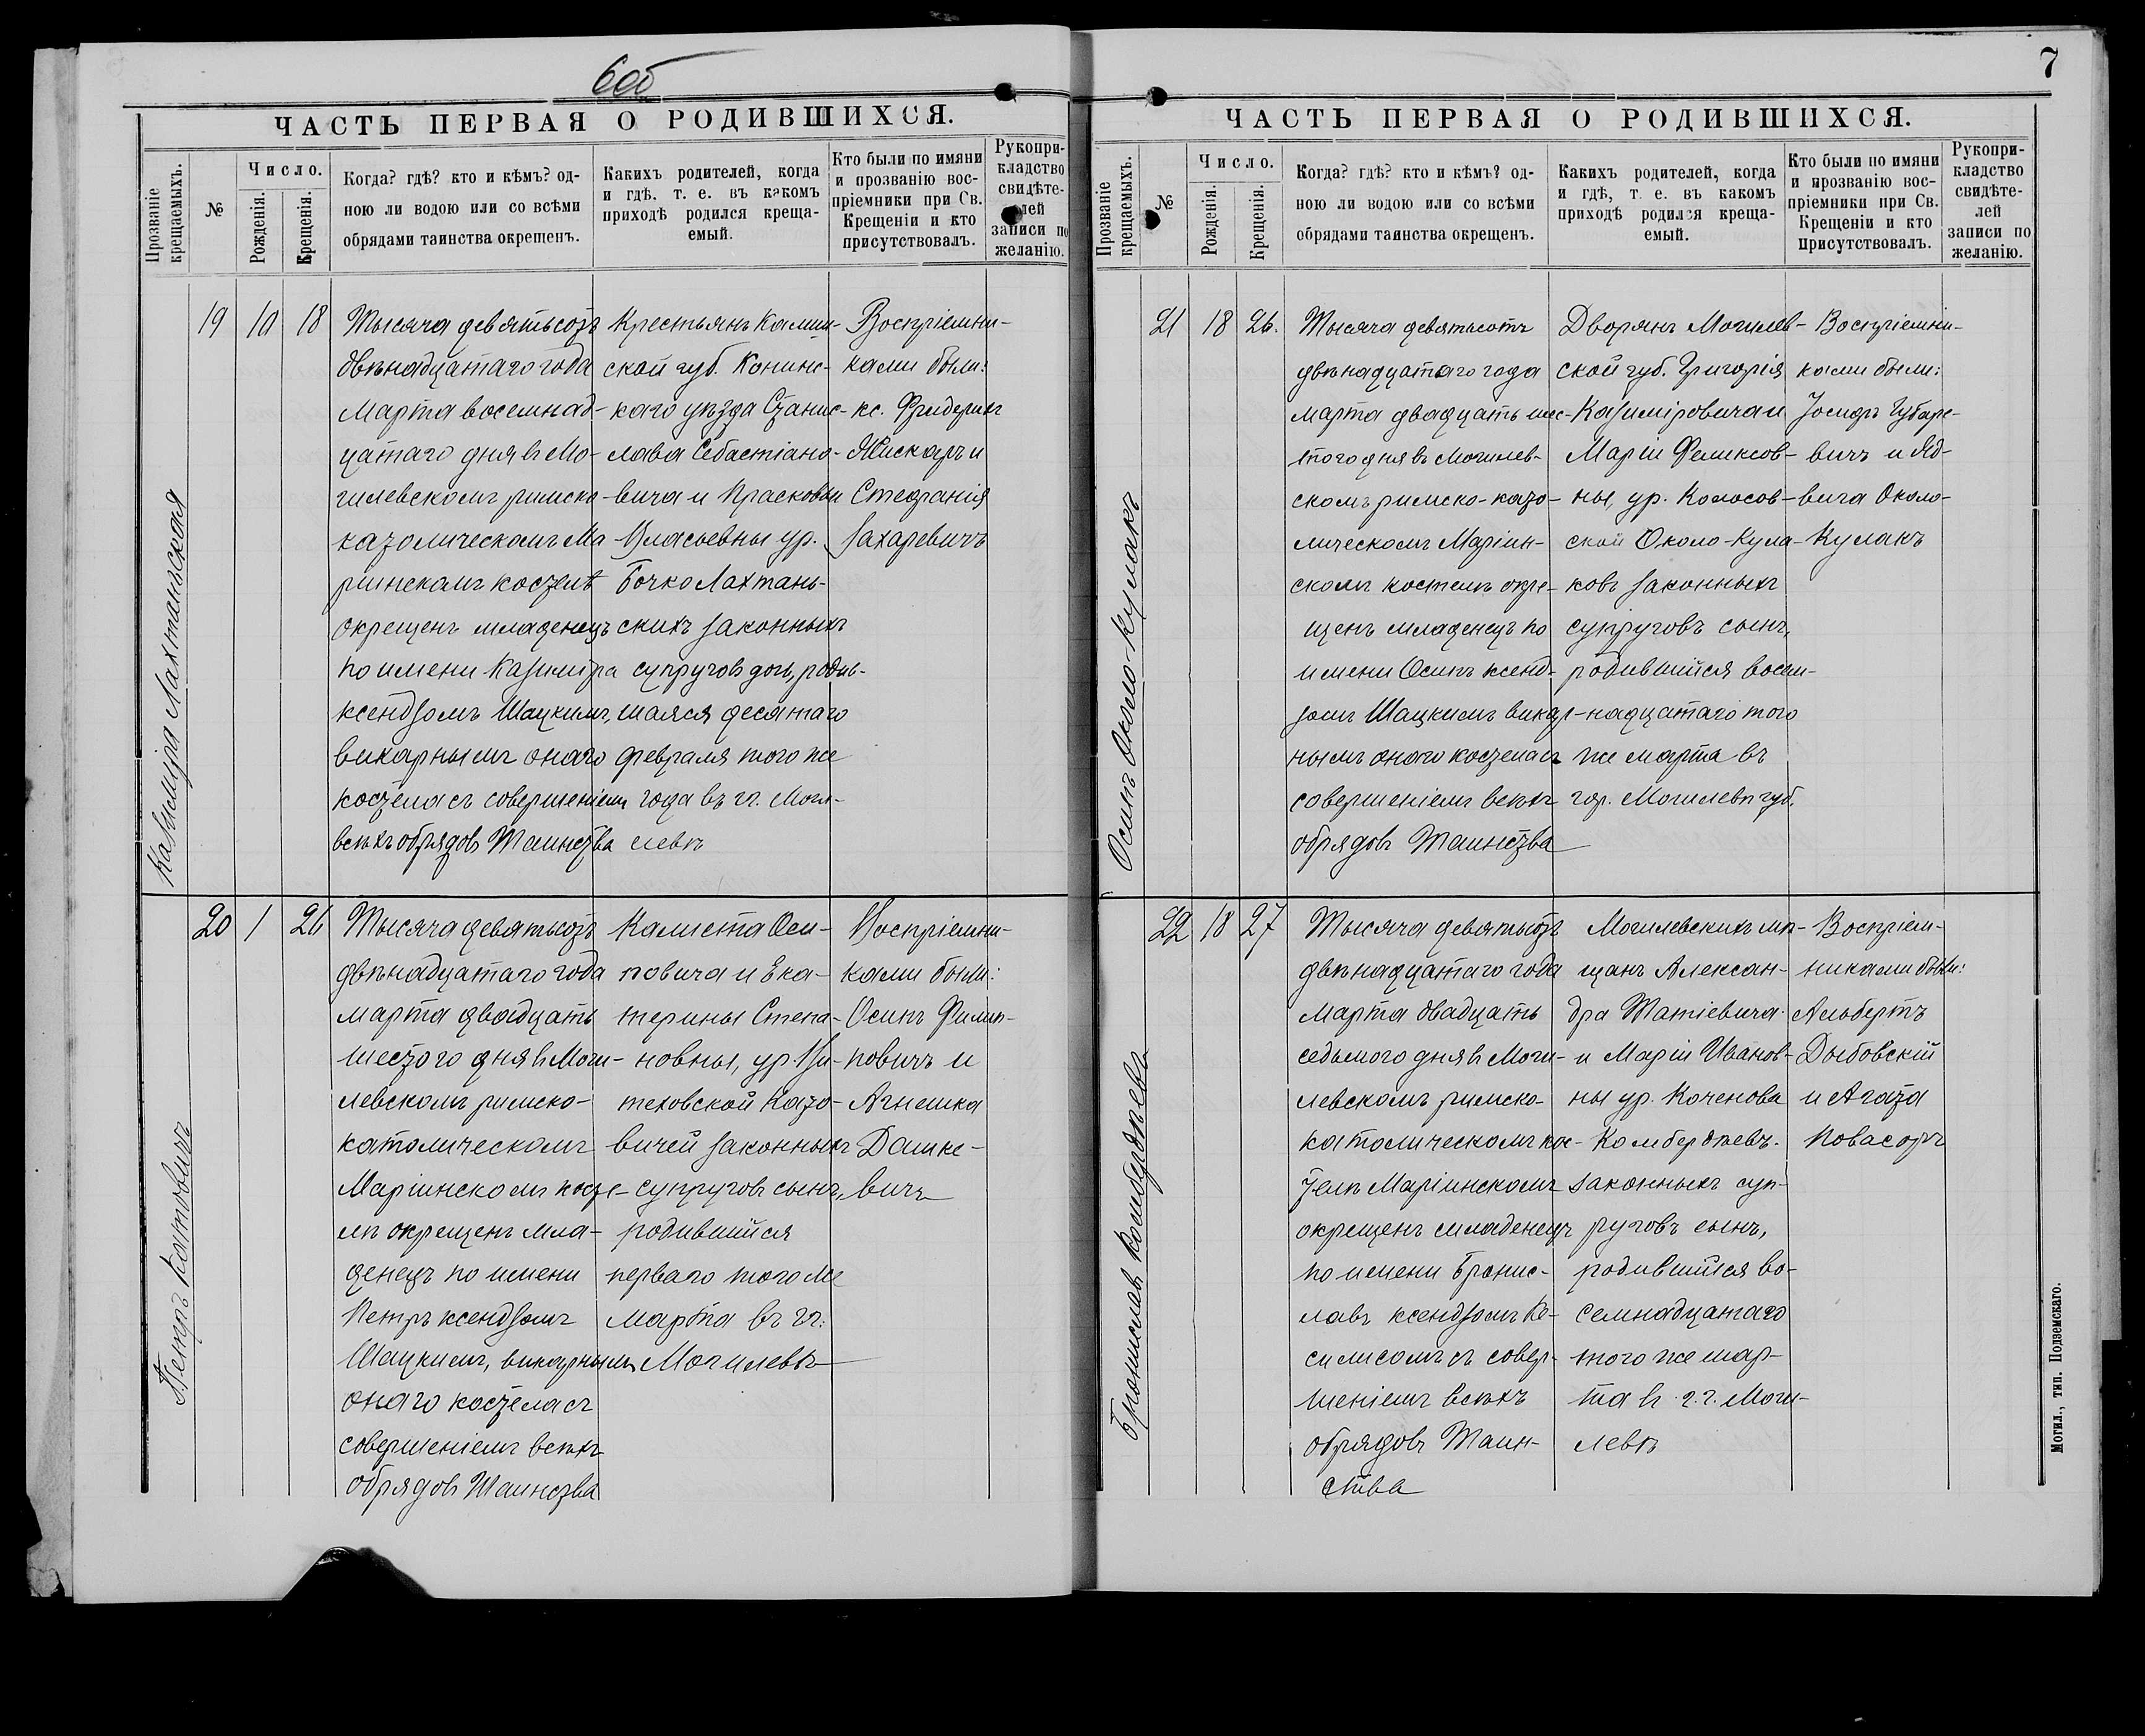 6об
ЧАСТЬ ПЕРВАЯ О РОДИВШИХСЯ.
Прозваніе крещаемыхъ.
№
Число.
Рожденія.
Крещенія.
Когда? гдѣ? кто и кѣмъ? од-
ною ли водою или со всѣми
обрядами таинства окрещенъ.
Какихъ родителей, когда
и гдѣ, т. е. въ какомъ
приходѣ родился креща-
емый.
Кто были по имяни
и прозванію вос-
пріемники при Св.
Крещеніи и кто
присутствовалъ.
Рукопри-
кладство
свидѣте-
лей
записи по
желанію.
Казимира Лахтаньская
19
10
18
Тысяча девятьсотъ
двѣнадцатаго года
Марта восемнад-
цатаго дня въ Мо-
гилевскомъ римско-
католическомъ Ма
ріинскомъ костелѣ
окрещенъ младенецъ
по имени Казиміра
ксендзомъ Шацкимъ,
викарнымъ онаго
костела съ совершеніемъ
всѣхъ обрядовъ Таинства
Крестьянъ Калиш-
ской губ. Конинс-
каго уѣзда Станис-
лава Себастіано-
вича и Прасковьи
Власьевны ур.
Бочко Лахтань-
скихъ законныхъ
супруговъ дочь, родив-
шаяся десятаго
февраля того же
года въ гг. Моги-
левѣ
Воспріемни-
ками были:
кс. Фридерикъ
Жискаръ и
Стефанія
Захаревичъ
Петръ Катовичъ
20
1
26
Тысяча девятьсотъ
двѣнадцатаго года
марта двадцать
шестого дня въ Моги-
левскомъ римско-
католическомъ
Маріинскомъ косте-
лѣ окрещенъ мла-
денецъ по имени
Петръ ксендзомъ
Шацкимъ, викарнымъ
онаго костела съ
совершеніемъ всѣхъ
обрядовъ Таинства
Калиста Оси-
повича и Ека-
терины Степа-
новны, ур.
теховской Като-
вичей законныхъ
супруговъ сынъ,
родившійся
перваго того же
Марта въ гг.
Могилевѣ
Воспріемни-
ками были:
Осипъ Филип-
повичъ и
Агнешка
Дашке-
вичъ
7
ЧАСТЬ ПЕРВАЯ О РОДИВШИХСЯ.
Прозваніе крещаемыхъ.
№
Число.
Рожденія.
Крещенія.
Когда? гдѣ? кто и кѣмъ? од-
ною ли водою или со всѣми
обрядами таинства окрещенъ.
Какихъ родителей, когда
и гдѣ, т. е. въ какомъ
приходѣ родился креща-
емый.
Кто были по имяни
и прозванію вос-
пріемники при Св.
Крещеніи и кто
присутствовалъ.
Рукопри-
кладство
свидѣте-
лей
записи по
желанію.
Осипъ Около-Кулакъ
21
18
26.
Тысяча девятьсотъ
двѣнадцатаго года
марта двадцать шес-
того дня въ Могилев-
скомъ римско-като-
лическомъ Маріин-
скомъ костелѣ окре-
щенъ младенецъ по
имени Осипъ ксенд-
зомъ Шацкимъ викар-
нымъ онаго костела съ
совершеніемъ всѣхъ
обрядовъ Таинства
Дворянъ Могилев-
ской губ. Григорія
Казиміровича и
Маріи Феликсов-
ны, ур. Колосов-
ской Около-Кула-
ковъ законныхъ
супруговъ сынъ,
родившійся восем-
надцатаго того
же марта въ
гор. Могилевѣ губ.
Воспріемни-
ками были:
Іосифъ Губаре-
вичъ и Яд-
вига Около-
Кулакъ
Брониславъ Комберджевъ
22
18
27
Тысяча девятьсотъ
двѣнадцатаго года
Марта двадцать
седьмого дня въ Моги-
левскомъ римско-
католическомъ кос-
телѣ Маріинскомъ
окрещенъ младенецъ
по имени Бронис-
лавъ ксендзомъ Ке-
силисомъ съ совер-
шеніемъ всѣхъ
обрядовъ Таин-
ства
Могилевскихъ мѣ-
щанъ Алексан-
дра Матіевича
и Маріи Иванов-
ны ур. Коченова
Комберджевъ.
законныхъ суп-
руговъ сынъ,
родившійся во-
семнадцатаго
того же мар-
та въ г.г. Моги-
левѣ
Воспріем-
никами были:
Альбертъ
Дыбовскій
и Агата
Могил., тип. Подземскаго.